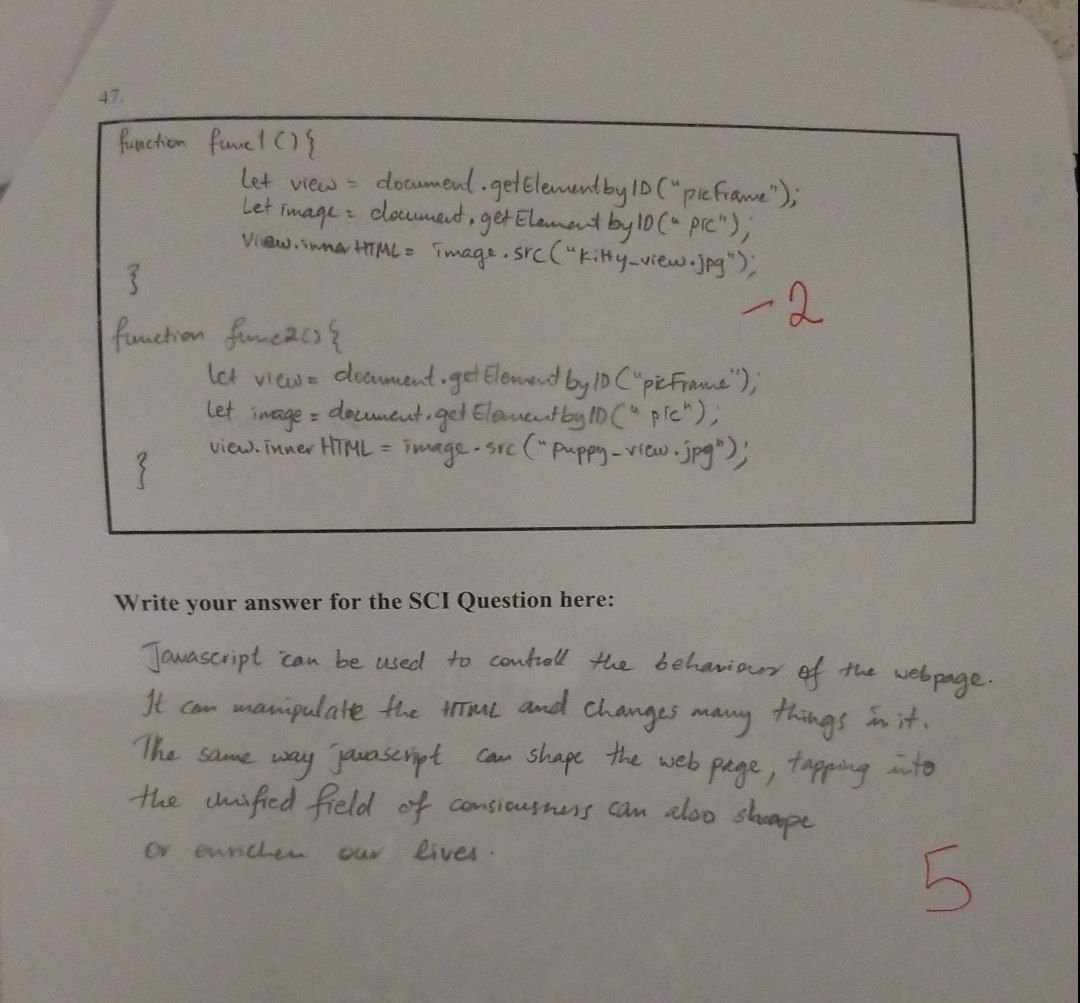 47.
function func1(){
Let view = document.getElementbyID("picframe");
Let image = document.getElementbyID("pic");
View.innerHTML = image.src("kitty_view.jpg");
}
-2
function func2(){
let view = document.getElementbyID("picFrame");
Let image = document.getElementbyID("pic");
view.innerHTML = image.src("puppy_view.jpg");
}
Write your answer for the SCI Question here:
Javascript can be used to controll the behaviour of the webpage.
It can manipulate the HTML and changes many things in it.
The same way javascript can shape the web page, tapping into
the unified field of consiousness can also shape
or enrichen our lives.
5